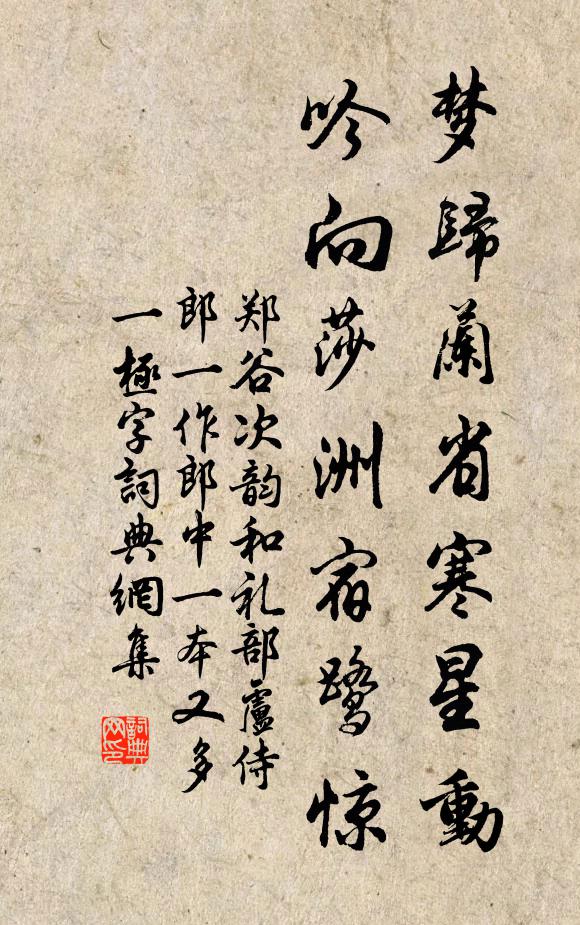 梦歸蘭省寒星動
吟向莎洲宿鹭惊
郑谷次韵和礼部盧侍
郎一作郎中一本又多
一極字詞典網集
詞典网印